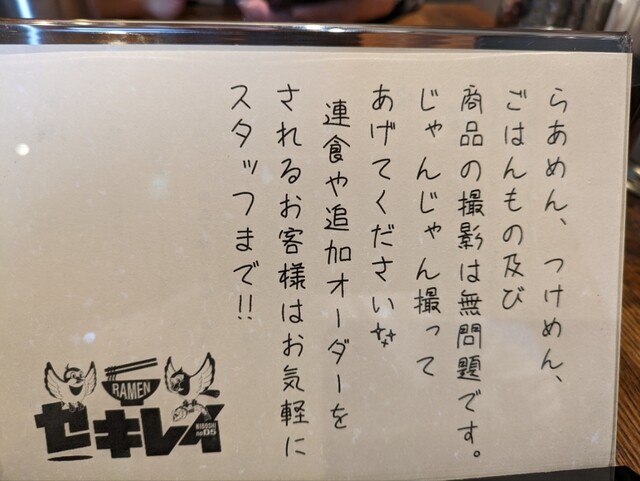 らあめん、つけめん、
ごはんもの及び
商品の撮影は無問題です。
じゃんじゃん撮って
あげてください✨
連食や追加オーダーを
されるお客様はお気軽に
スタッフまで!!
RAMEN
セキレイ